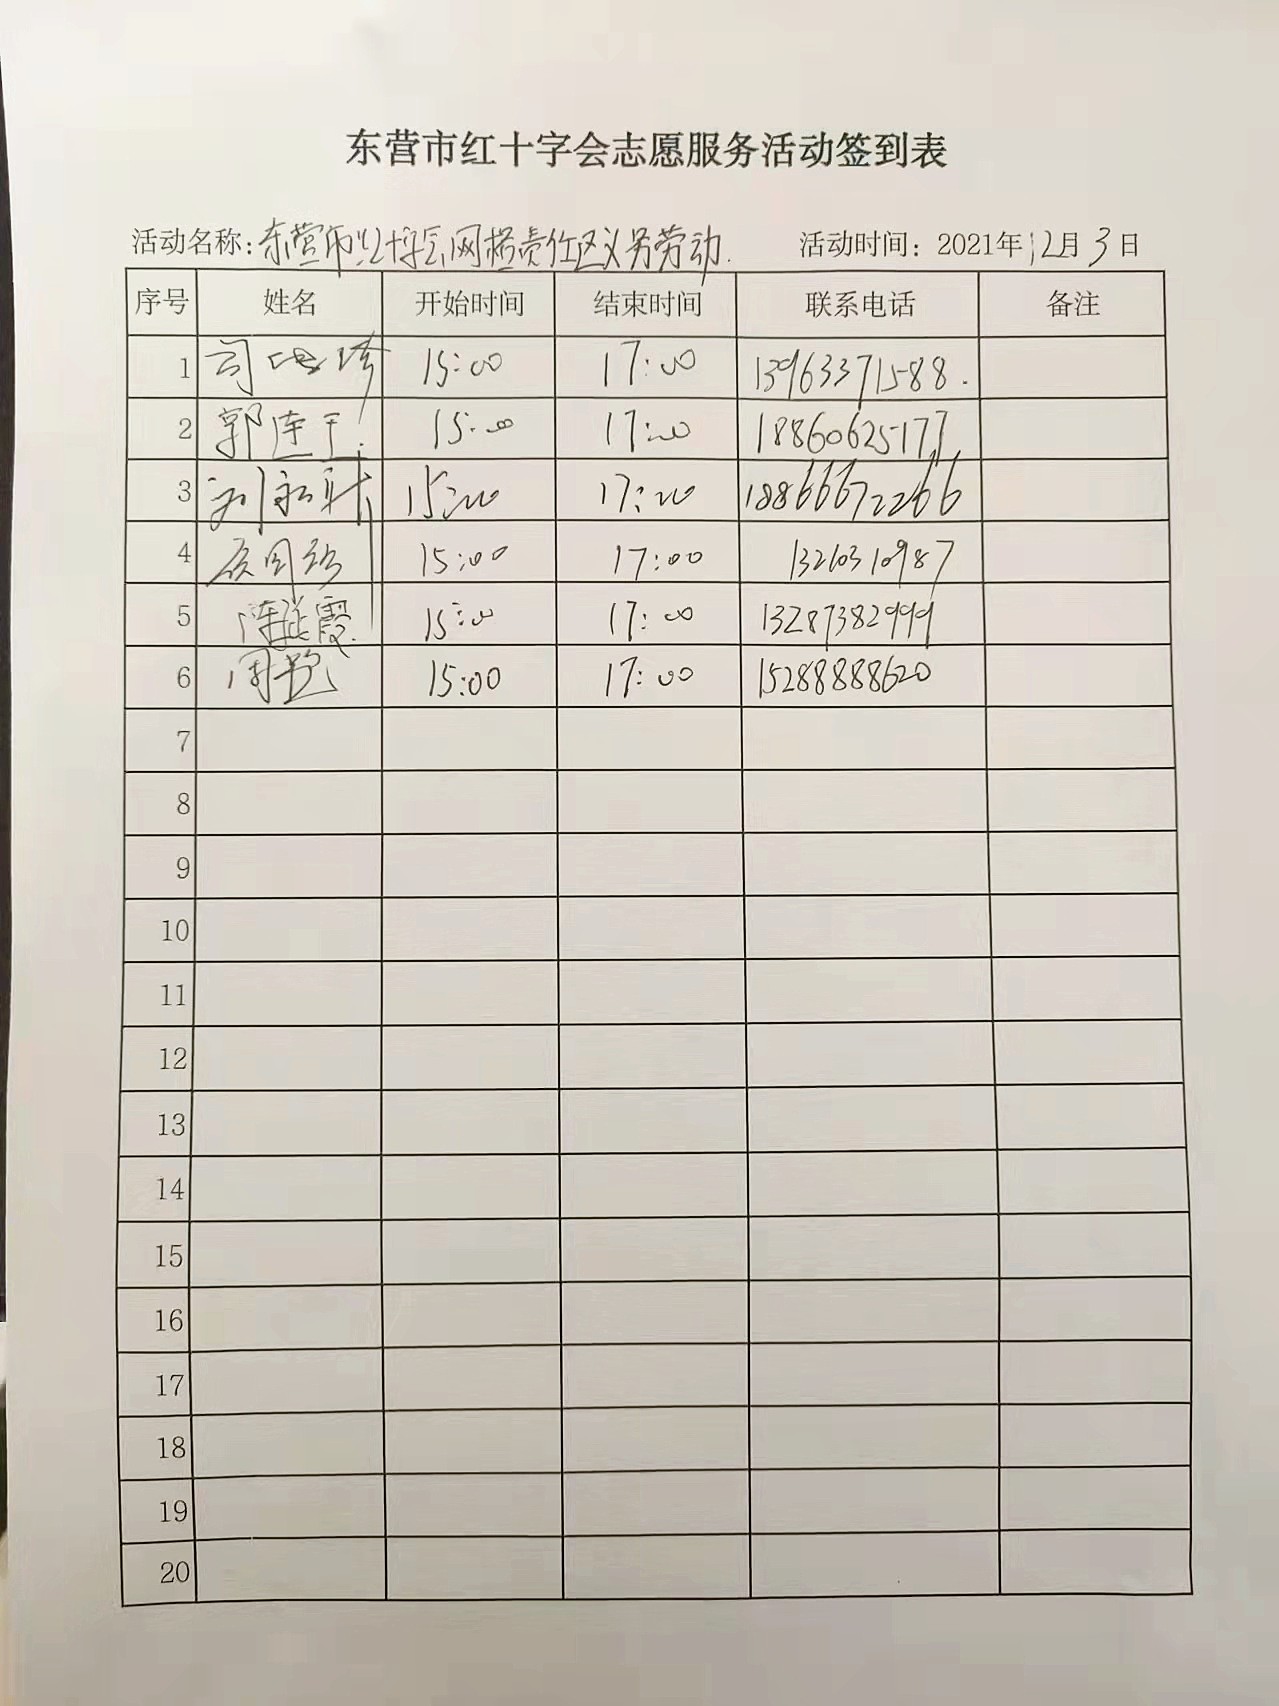 东营市红十字会志愿服务活动签到表
活动名称:东营市红十字会网格责任区义务劳动. 活动时间: 2021年12月3日
序号 姓名 开始时间 结束时间 联系电话 备注
1 司 15:00 17:00 13963371588.
2 郭连玉 15:00 17:00 18860625177
3 刘 15:00 17:00 18866672266
4 15:00 17:00
5 陈 霞 15:00 17:00 13287382999
6 周 15:00 17:00 15288888620
7
8
9
10
11
12
13
14
15
16
17
18
19
20